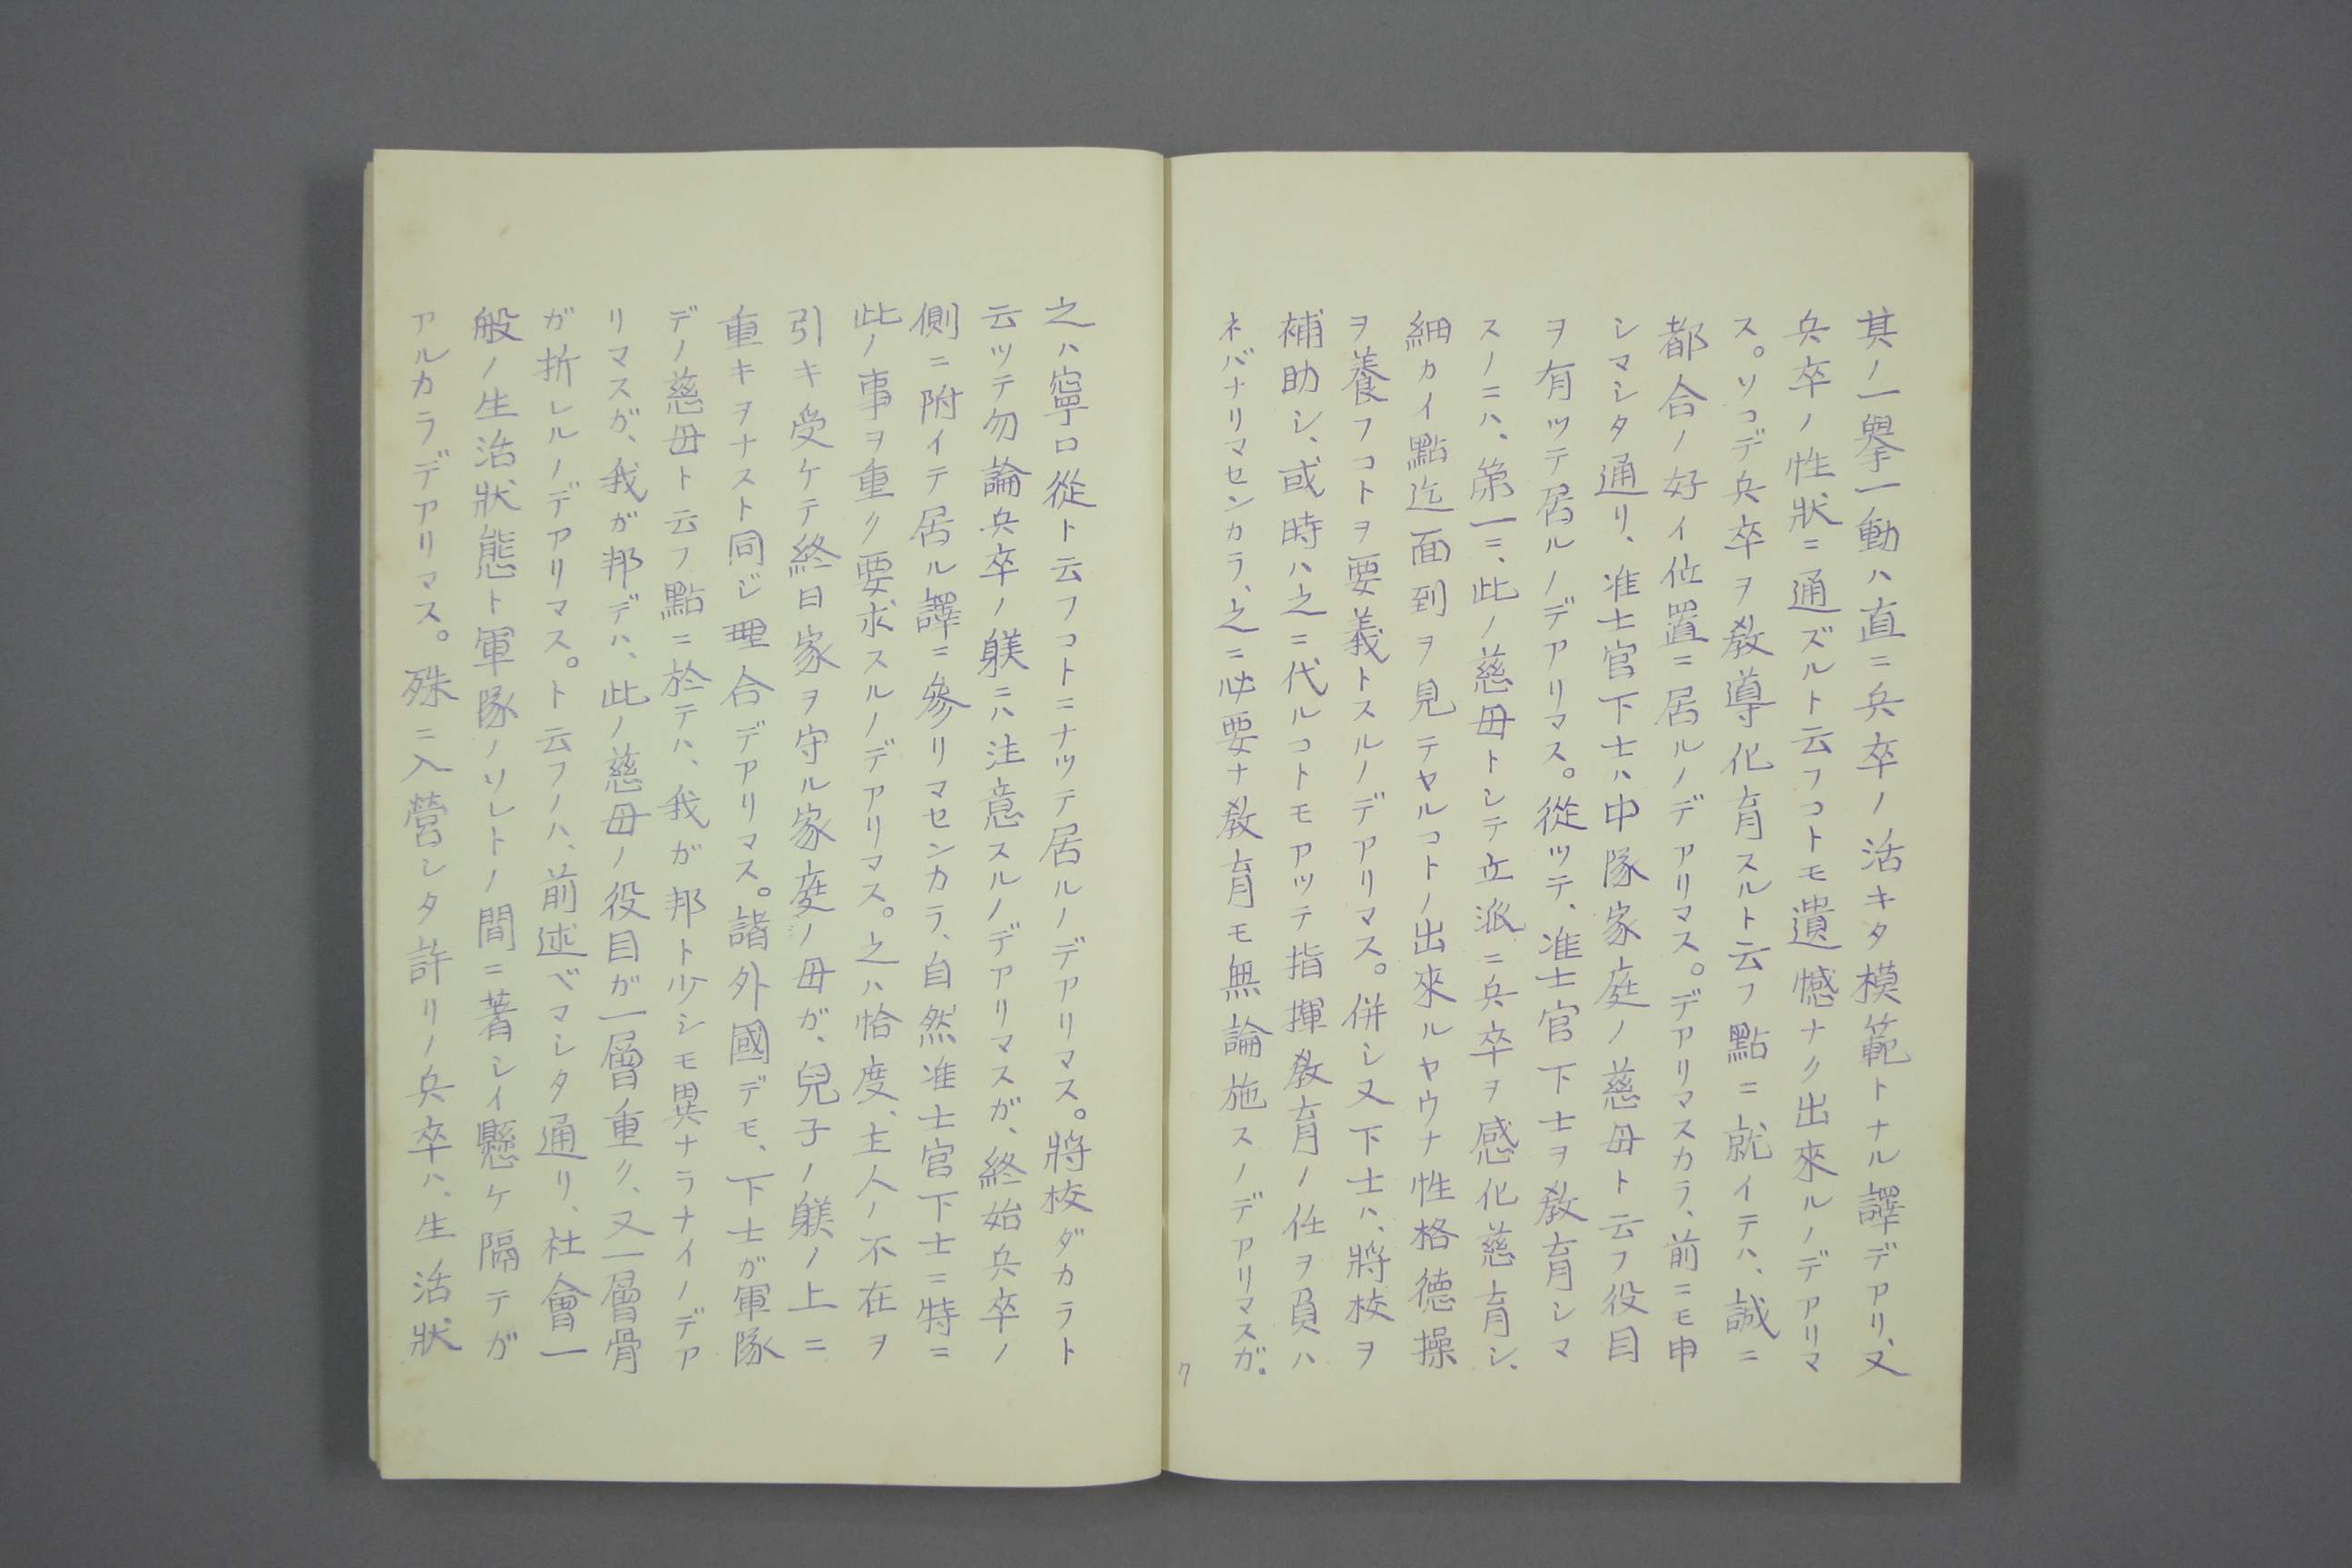 其ノ一擧一動ハ直ニ兵卒ノ活キタ模範トナル譯デアリ、又
兵卒ノ性狀ニ通ズルト云フコトモ遺憾ナク出來ルノデアリマ
ス。ソコデ兵卒ヲ敎導化育スルト云フ點ニ就イテハ、誠ニ
都合ノ好イ位置ニ居ルノデアリマス。デアリマスカラ、前ニモ申
シマシタ通リ、准士官下士ハ中隊家庭ノ慈母ト云フ役目
ヲ有ツテ居ルノデアリマス。從ツテ、准士官下士ヲ敎育シマ
スノニハ、第一ニ、此ノ慈母トシテ立派ニ兵卒ヲ感化慈育シ、
細カイ點迄面到ヲ見テヤルコトノ出來ルヤウナ性格德操
ヲ養フコトヲ要義トスルノデアリマス。併シ又下士ハ、將校ヲ
補助シ、或時ハ之ニ代ルコトモアツテ指揮敎育ノ任ヲ負ハ
ネバナリマセンカラ、之ニ必要ナ敎育モ無論施スノデアリマスガ。
ク
之ハ寧ロ從ト云フコトニナツテ居ルノデアリマス。將校ダカラト
云ツテ勿論兵卒ノ躾ニハ注意スルノデアリマスガ、終始兵卒ノ
側ニ附イテ居ル譯ニ參リマセンカラ、自然准士官下士ニ特ニ
此ノ事ヲ重ク要求スルノデアリマス。之ハ恰度、主人ノ不在ヲ
引キ受ケテ終日家ヲ守ル家庭ノ母ガ、兒子ノ躾ノ上ニ
重キヲナスト同ジ理合デアリマス。諸外國デモ、下士ガ軍隊
デノ慈母ト云フ點ニ於テハ、我ガ邦ト少シモ異ナラナイノデア
リマスガ、我ガ邦デハ、此ノ慈母ノ役目ガ一層重ク、又一層骨
ガ折レルノデアリマス。ト云フノハ、前述ベマシタ通リ、社會一
般ノ生活狀態ト軍隊ノソレトノ間ニ著シイ懸ケ隔テガ
アルカラデアリマス。殊ニ入營シタ許リノ兵卒ハ、生活狀